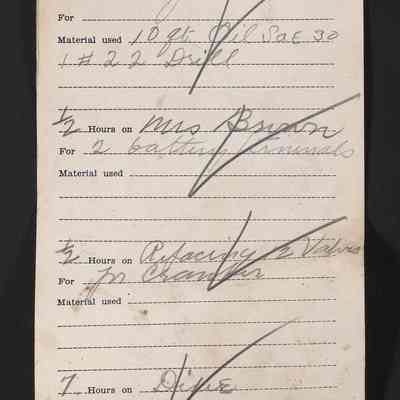 For
Material used 10 qt Oil SAE 30
1 # 22 Drill
1/2 Hours on Mrs Brown
For 2 battery terminals
Material used
1/2 Hours on Refacing 2 Valves
For for
Material used
7 Hours on